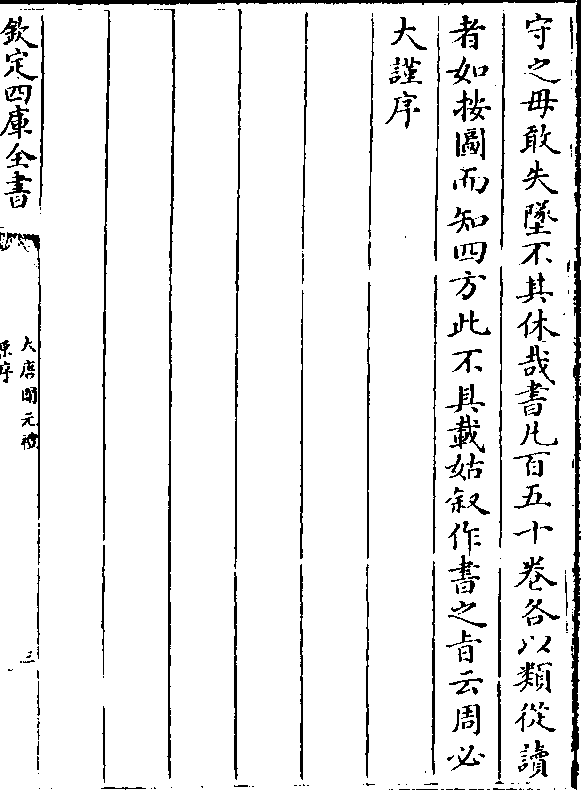 守之毋敢失墜不其休哉書凡百五十卷各以類從讀
者如按圖而知四方此不具載姑叙作書之旨云周必
大謹序
欽定四庫全書
大唐開元禮
原序
三